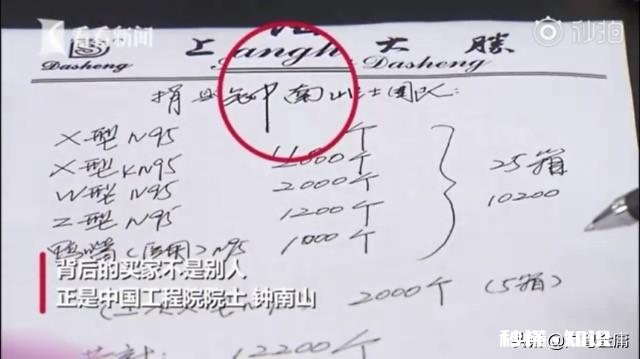 看看新闻
秒拍
上 大 勝
Dasheng
Dasheng
南山院士团队:
X型 N95 个
X型 KN95 000个
W型 N95 2000个
25箱
Z型 N95 1200个
10200
鸭嘴(医用) N95 1000个
背后的买家不是别人
正是中国工程院院士 钟南山
2000个 (5箱)
12200个